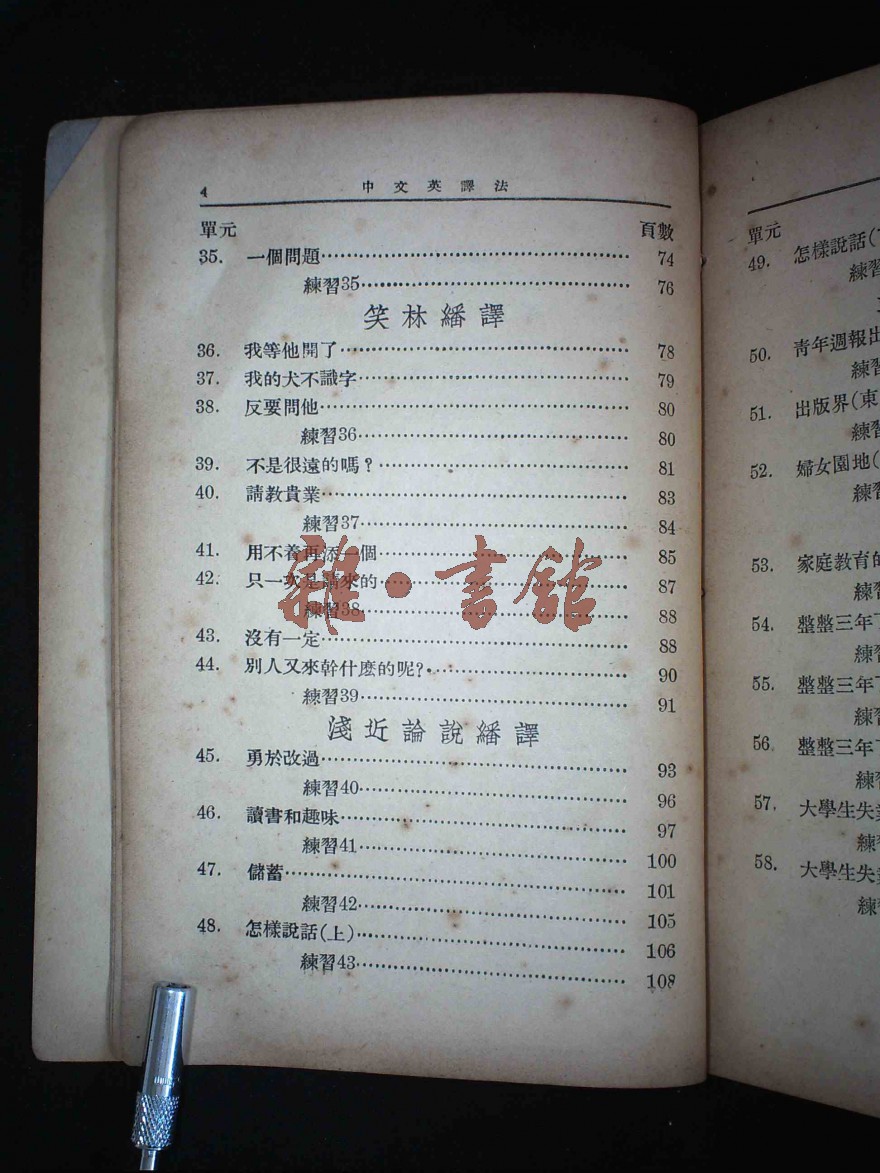 4 中文英譯法
單元 頁數
35. 一個問題 74
練習35 76
笑林繙譯
36. 我等他開了 78
37. 我的犬不識字 79
38. 反要問他 80
練習36 80
39. 不是很遠的嗎？ 81
40. 請教貴業 83
練習37 84
41. 用不着再添一個 85
42. 只一次是請來的 87
練習38 88
43. 沒有一定 88
44. 別人又來幹什麽的呢？ 90
練習39 91
淺近論說繙譯
45. 勇於改過 93
練習40 96
46. 讀書和趣味 97
練習41 100
47. 儲蓄 101
練習42 105
48. 怎樣說話(上) 106
練習43 108
雜·書館
單元
49. 怎樣說話(
練習
50. 青年週報出
練習
51. 出版界(東
練習
52. 婦女園地(
練習
53. 家庭教育的
練習
54. 整整三年
練習
55. 整整三年
練習
56. 整整三年
練習
57. 大學生失業
練習
58. 大學生失業
練習